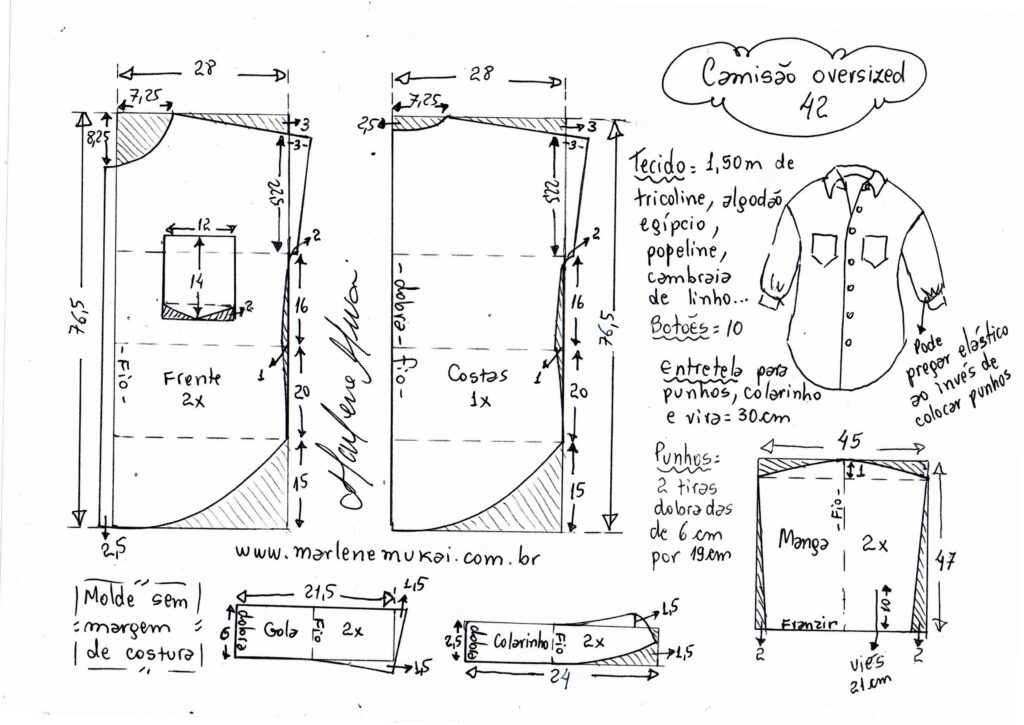 28
7,25
8,25
3
-3-
22,5
12
14
2
2
16
1
76,5
-Fio-
Frente
2x
20
15
2,5
28
7,25
2,5
3
-3-
22,5
2
16
76,5
-dobra-
-Fio-
1
Costas
1x
20
15
Marlene Mukai
www.marlenemukai.com.br
Camisão oversized
42
Tecido= 1,50m de
tricoline, algodão
egípcio,
popeline,
cambraia
de linho...
Botões=10
Entretela para
punhos, colarinho
e vira=30cm
Pode
pregar elástico
ao invés de
colocar punhos
Punhos=
2 tiras
dobradas
de 6cm
por 19cm
45
1
-Fio-
Manga
2x
47
10
Franzir
2
2
viés
21cm
Molde sem
margem
de costura
21,5
1,5
6
dobra
Gola
Fio
2x
1,5
2,5
dobra
Colarinho
Fio
2x
1,5
1,5
24